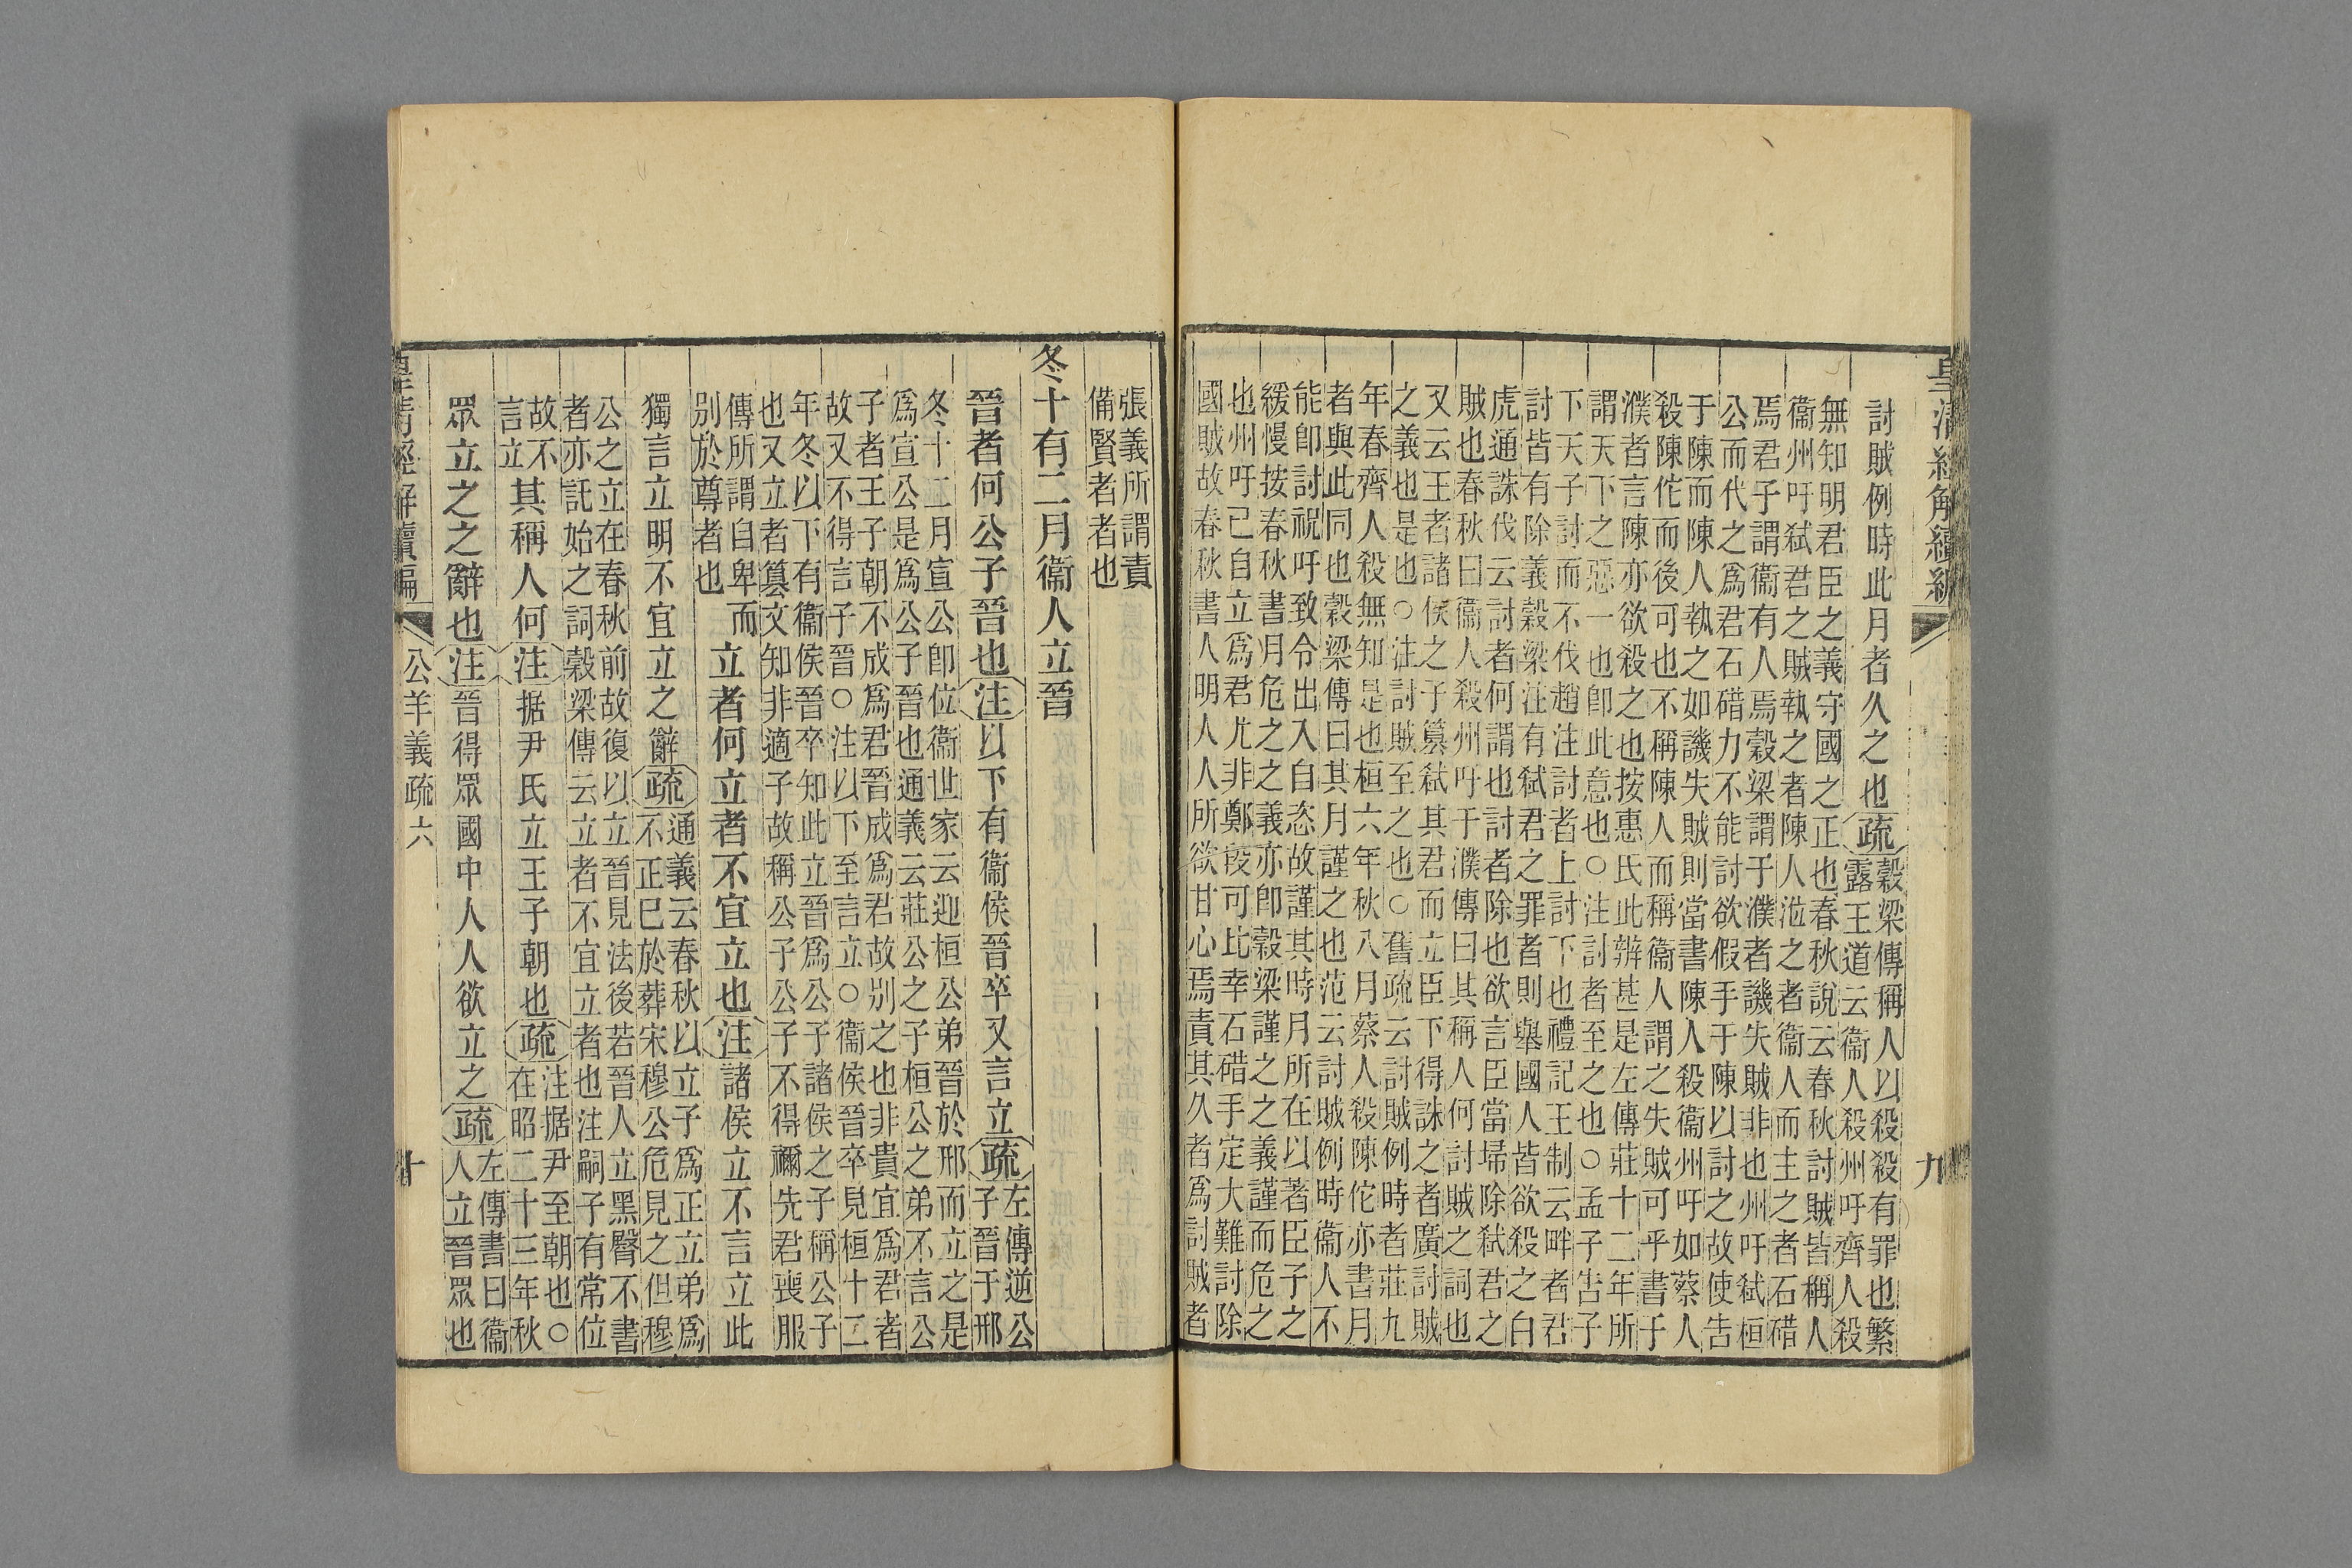 皇清經解續編
九
討賊例時此月者久之也疏穀梁傳稱人以殺殺有罪也繁
露王道云衞人殺州吁齊人殺
無知明君臣之義守國之正也春秋說云春秋討賊皆稱人
衞州吁弑君之賊執之者陳人涖之者衞人而主之者石碏
焉君子謂衞有人焉穀梁謂于濮者譏失賊非也州吁弑桓
公而代之爲君石碏力不能討欲假手于陳以討之故使告
于陳而陳人執之如譏失賊則當書陳人殺衞州吁如蔡人
殺陳佗而後可也不稱陳人而稱衞人謂之失賊可乎書于
濮者言陳亦欲殺之也按惠氏此辨甚是左傳莊十二年所
謂天下之惡一也卽此意也○注討者至之也○孟子告子
下天子討而不伐趙注討者上討下也禮記王制云畔者君
討皆有除義穀梁注有弑君之罪者則舉國人皆欲殺之白
虎通誅伐云討者何謂也討者除也欲言臣當埽除弑君之
賊也春秋曰衞人殺州吁于濮傳曰其稱人何討賊之詞也
又云王者諸侯之子簒弑其君而立臣下得誅之者廣討賊
之義也是也○注討賊至之也○舊疏云討賊例時者莊九
年春齊人殺無知是也桓六年秋八月蔡人殺陳佗亦書月
者與此同也穀梁傳曰其月謹之也范云討賊例時衞人不
能卽討祝吁致令出入自恣故謹其時月所在以著臣子之
緩慢按春秋書月危之之義亦卽穀梁謹之之義謹而危之
也州吁已自立爲君尤非鄭段可比幸石碏手定大難討除
國賊故春秋書人明人人所欲甘心焉責其久者爲討賊者
張義所謂責
備賢者者也
冬十有二月衞人立晉
晉者何公子晉也注以下有衞侯晉卒又言立疏左傳逆公
子晉于邢
冬十二月宣公卽位衞世家云迎桓公弟晉於邢而立之是
爲宣公是爲公子晉也通義云莊公之子桓公之弟不言公
子者王子朝不成爲君晉成爲君故别之也非貴宜爲君者
故又不得言子晉○注以下至言立○衞侯晉卒見桓十二
年冬以下有衞侯晉卒知此立晉爲公子諸侯之子稱公子
也又立者簒文知非適子故稱公子公子不得禰先君喪服
傳所謂自卑而
别於尊者也
立者何立者不宜立也注諸侯立不言立此
獨言立明不宜立之辭疏通義云春秋以立子爲正立弟爲
不正已於葬宋穆公危見之但穆
公之立在春秋前故復以立晉見法後若晉人立黑臀不書
者亦託始之詞穀梁傳云立者不宜立者也注嗣子有常位
故不
言立
其稱人何注据尹氏立王子朝也疏注据尹至朝也○
在昭二十三年秋
眾立之之辭也注晉得眾國中人人欲立之疏左傳書曰衞
人立晉眾也
皇清經解續編
公羊義疏六
十